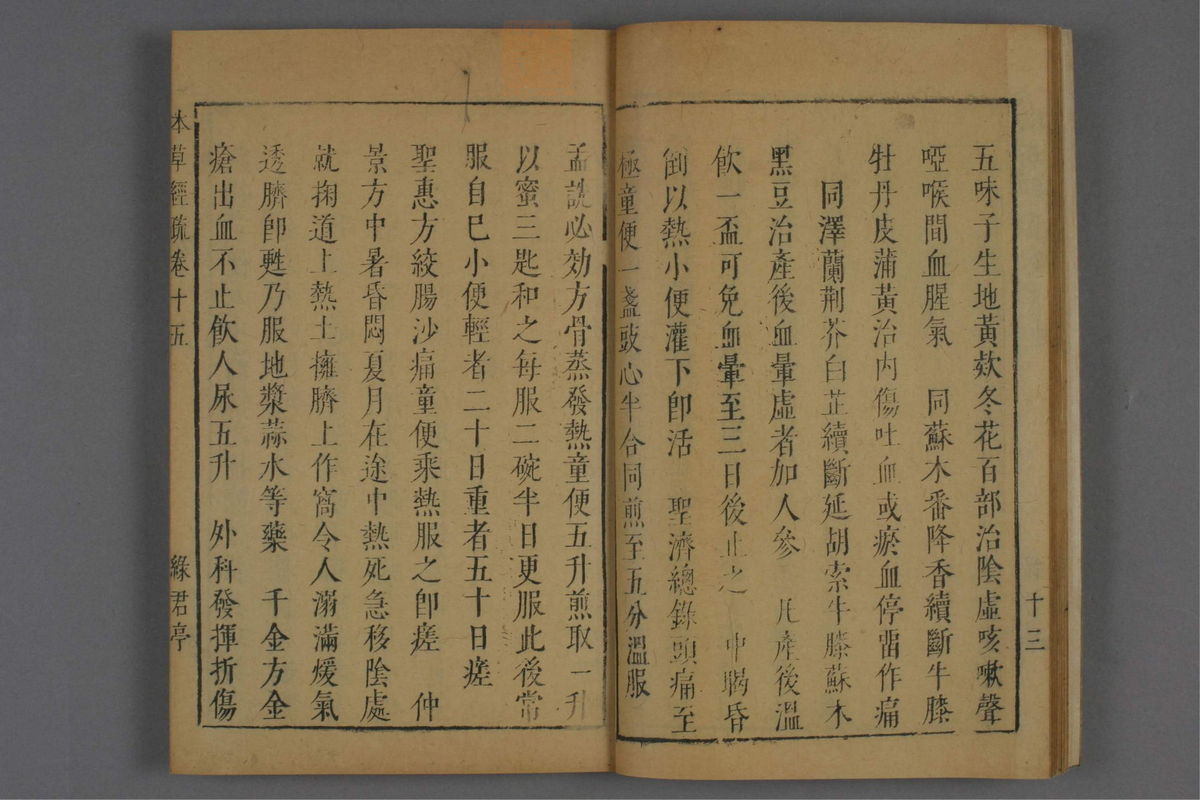 五味子生地黃欵冬花百部治陰虛咳嗽聲
啞喉間血腥氣　同蘇木番降香續斷牛膝
牡丹皮蒲黃治內傷吐血或瘀血停畱作痛
同澤蘭荆芥白芷續斷延胡索牛膝蘇木
黑豆治產後血暈虛者加人參　凡產後溫
飲一盃可免血暈至三日後止之　中暍昏
倒以熱小便灌下卽活　聖濟總錄頭痛至
極童便一盞豉心半合同煎至五分溫服
十三
孟詵必効方骨蒸發熱童便五升煎取一升
以蜜三匙和之每服二碗半日更服此後常
服自巳小便輕者二十日重者五十日瘥
聖惠方絞腸沙痛童便乘熱服之卽瘥　仲
景方中暑昏悶夏月在途中熱死急移陰處
就掬道上熱土擁臍上作窩令人溺滿煖氣
透臍卽甦乃服地漿蒜水等藥　千金方金
瘡出血不止飲人尿五升　外科發揮折傷
本草經疏卷十五　綠君亭